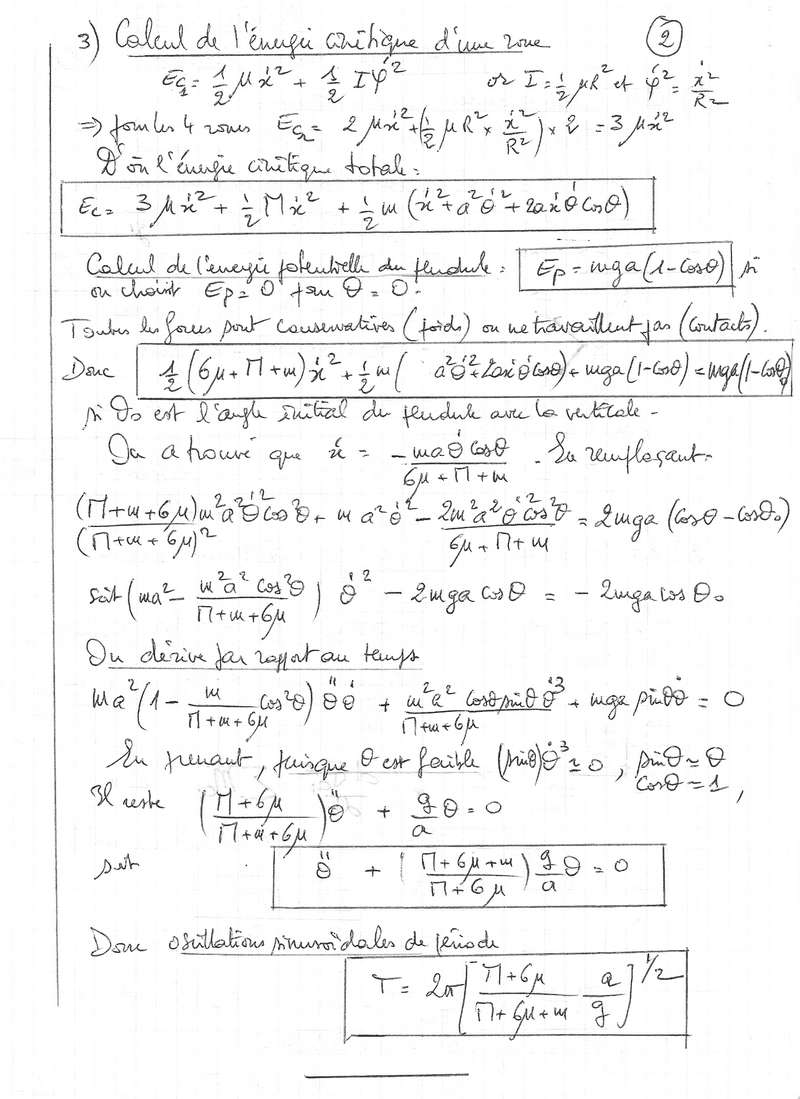 3) Calcul de l'énergie cinétique d'une roue (2)
Ec₁ = 1/2 μẋ² + 1/2 Iφ̇² or I = 1/2 μR² et φ̇² = ẋ²/R²
⇒ pour les 4 roues Ec₂ = 2μẋ² + (1/2 μR² × ẋ²/R²) × 2 = 3μẋ²
D'où l'énergie cinétique totale :
Ec = 3μẋ² + 1/2 Mẋ² + 1/2 m (ẋ² + a²θ̇² + 2aẋθ̇ cosθ)
Calcul de l'énergie potentielle du pendule : Ep = mga(1-cosθ) si
on choisit Ep = 0 pour θ = 0.
Toutes les forces sont conservatives (poids) ou ne travaillent pas (contacts).
Donc 1/2 (6μ + M + m)ẋ² + 1/2 m ( a²θ̇² + 2aẋθ̇ cosθ) + mga(1-cosθ) = mga(1-cosθ₀)
si θ₀ est l'angle initial du pendule avec la verticale -
On a trouvé que ẋ = - maθ̇ cosθ / (6μ + M + m) . En remplaçant -
(M+m+6μ)m²a²θ̇²cos²θ / (M+m+6μ)² + m a²θ̇² - 2m²a²θ̇²cos²θ / (6μ+M+m) = 2mga (cosθ - cosθ₀)
soit (ma² - m²a² cos²θ / (M+m+6μ)) θ̇² - 2mga cosθ = - 2mga cosθ₀
On dérive par rapport au temps
ma² (1 - m/(M+m+6μ) cos²θ) θ̈ θ̇ + m²a² cosθ sinθ θ̇³ / (M+m+6μ) + mga sinθ θ̇ = 0
En prenant, puisque θ est faible (sinθ)θ̇³ ≃ 0, sinθ ≃ θ
cosθ ≃ 1,
Il reste ((M+6μ)/(M+m+6μ)) θ̈ + g/a θ = 0
soit θ̈ + ((M+6μ+m)/(M+6μ)) g/a θ = 0
Donc oscillations sinusoïdales de période
T = 2π [(M+6μ)/(M+6μ+m) a/g]^1/2